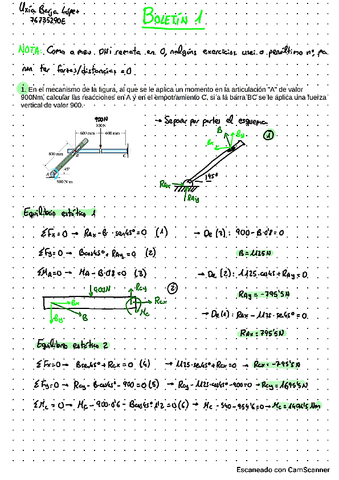 Uxía Borja López
76735290E
BOLETÍN 1
NOTA: Como o meu DNI remata en 0, nalgúns exercicios usei o penúltimo nº, pa
ra non ter forzas/distancias = 0
1. En el mecanismo de la figura, al que se le aplica un momento en la articulación "A" de valor
900Nm, calcular las reacciones en A y en el empotramiento C, si a la barra BC se le aplica una fuerza
vertical de valor 900.
→ Separar por partes el esquema
900N
600 mm 600 mm
800 mm
B
C
45°
A
900 N·m
B
①
45°
RAx
RAy
Equilibrio estático 1
ΣFx=0 → RAx - B·sen45º=0 (1) → De (3): 900 - B·0'8=0
ΣFy=0 → Bcos45º+RAy=0 (2) B=1125N
ΣMA=0 → MA - B·0'8=0 (3) → De (2): 1125·cos45+RAy=0.
RAy=-795'5N
900N RCy ②
Bx RCx
By B Mc
→ De (1): RAx - 1125·sen45º=0.
RAx=795'5N
Equilibrio estático 2
ΣFx=0 → Bsen45º+RCx=0 (4) → 1125·sen45º+RCx=0 → RCx=-795'5N
ΣFy=0 → RCy - Bcos45º - 900=0 (5) → RCy - 1125·cos45º - 900=0 → RCy=1695'5N
ΣMc=0 → Mc - 900·0'6 - Bcos45º·1'2=0 (6) → Mc - 540 - 954'6=0 → Mc=1494'6 Nm
Escaneado con CamScanner